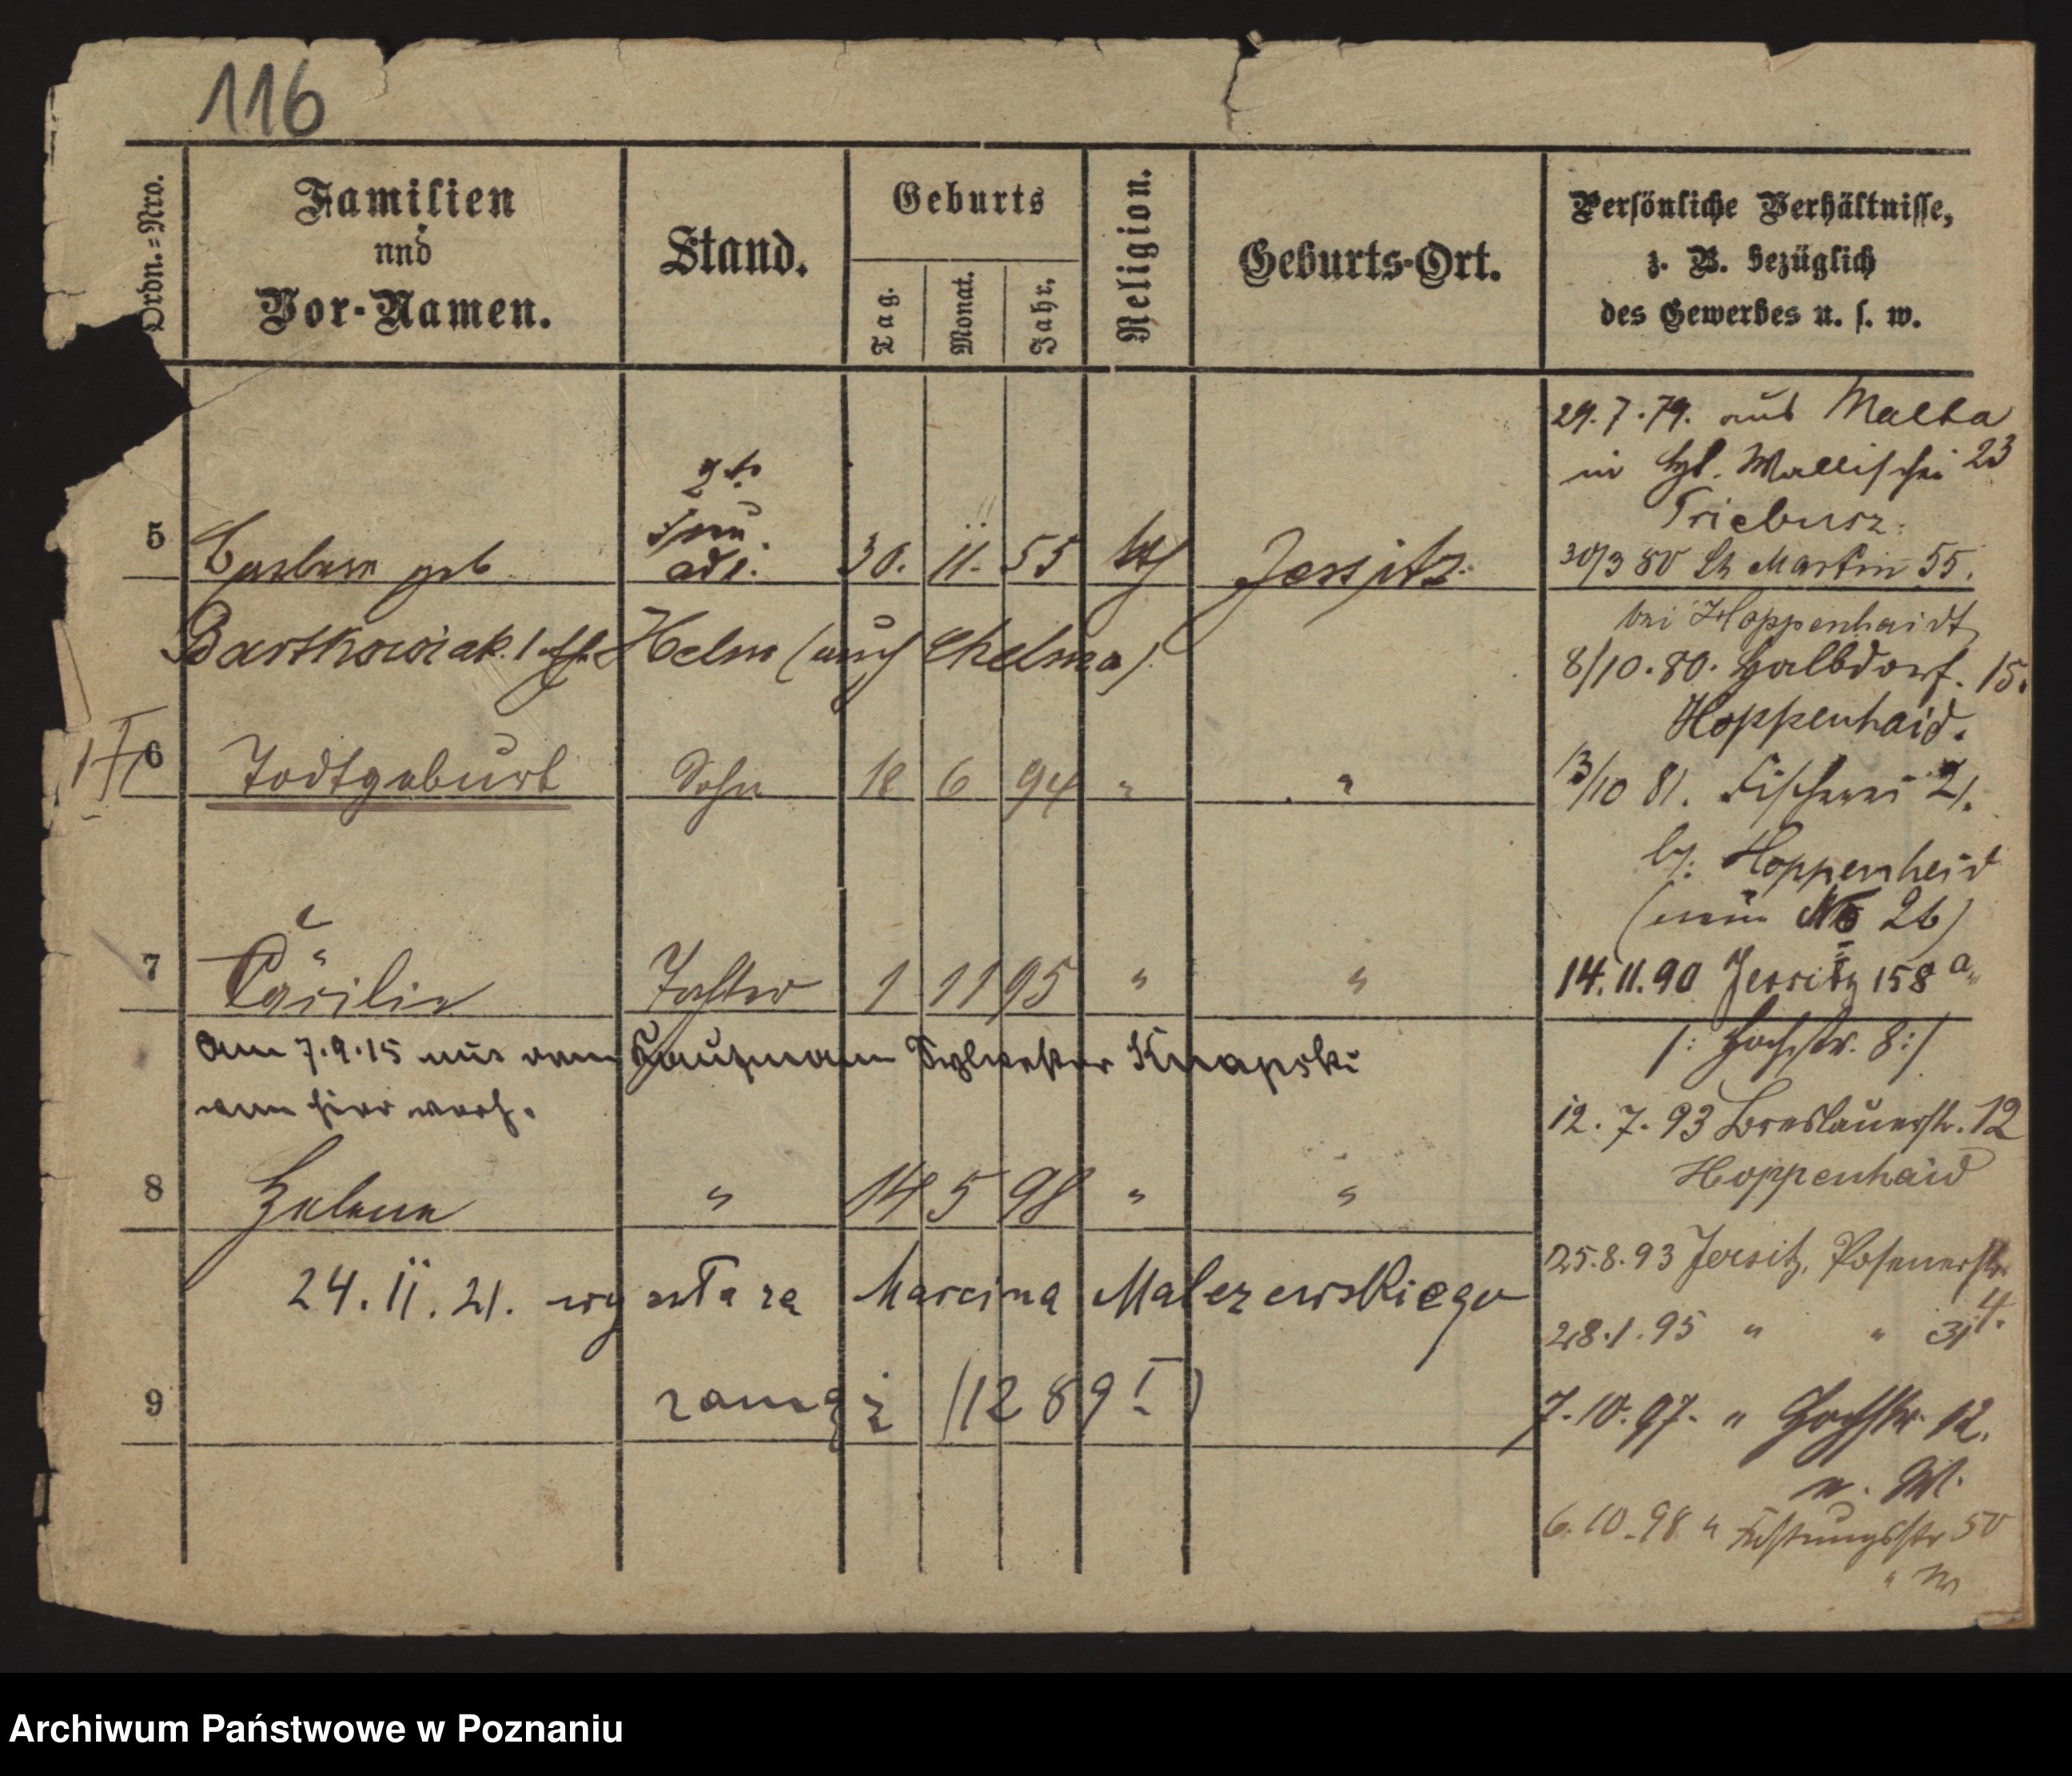 116
Ordn.=Nro.
Familien
und
Vor-Namen.
Stand.
Geburts
Tag.
Monat.
Jahr.
Religion.
Geburts-Ort.
Persönliche Verhältnisse,
z. B. bezüglich
des Gewerbes u. s. w.
5
geb
30. 11. 55
Bartkowiak
Helm (auch Chelma)
6 Todtgeburt Sohn 18 6 94 " "
7 Cäcilie Tochter 1 11 95 " "
Am 7.9.15 mit dem Kaufmann Sylvester Knapski
von hier verh.
8 Helene " 14 5 98 " "
24. II. 21. wyszła za Marcina Malezewskiego
zamąż (1289 I)
9
29.7.79. aus Malta
in Wallischei 23
Triebusz.
30/3 80 St Martin 55.
bei Hoppenhaidt
8/10.80. Halbdorf. 15.
Hoppenhaid.
13/10 81. Fischerei 21.
b/. Hoppenheid
(neu No 26)
14.11.90 Jersitz 158 a
/: Hochstr. 8:/
12.7.93 Breslauerstr. 12
Hoppenhaid
25.8.93 Jersitz, Posenerstr.
4.
28.1.95 " " 31
7.10.97. " Hochstr. 12.
n. W.
6.10.98 " Festungsstr 50
" W